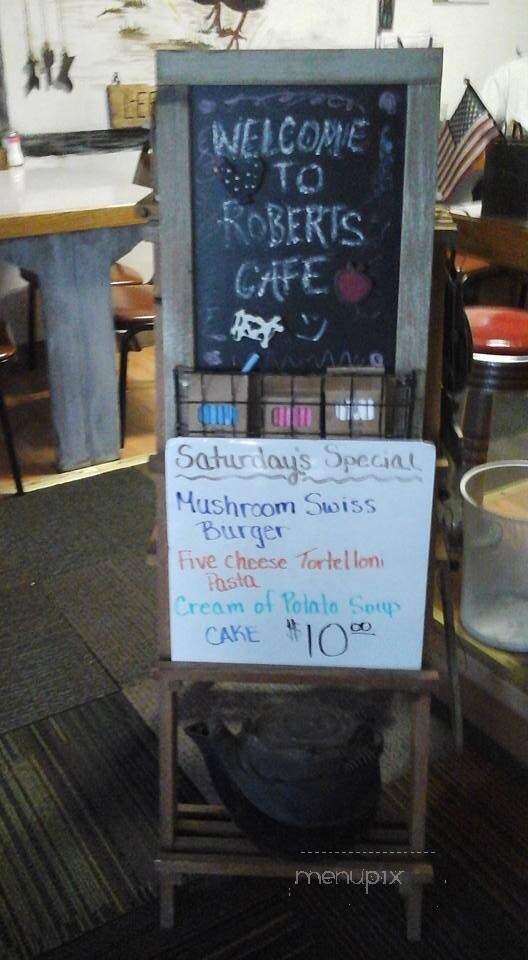 WELCOME
TO
ROBERTS
CAFE
Saturday's Special
Mushroom Swiss
Burger
Five Cheese Tortelloni
Pasta
Cream of Potato Soup
CAKE $10.00
menupix